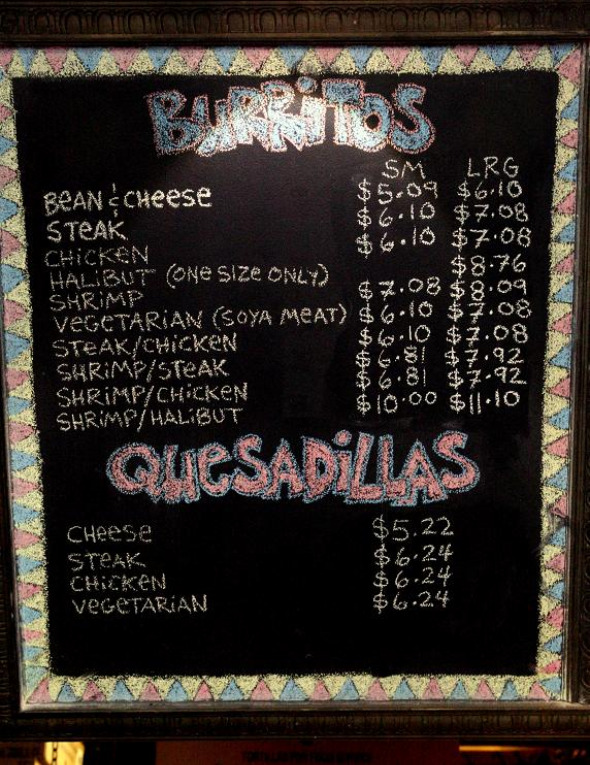 BURRiTOS
SM LRG
BEAN & CHEESE $5.09 $6.10
STEAK $6.10 $7.08
CHICKEN $6.10 $7.08
HALIBUT (ONE SIZE ONLY) $8.76
SHRIMP $7.08 $8.09
VEGETARIAN (SOYA MEAT) $6.10 $7.08
STEAK/CHICKEN $6.10 $7.08
SHRIMP/STEAK $6.81 $7.92
SHRIMP/CHICKEN $6.81 $7.92
SHRIMP/HALIBUT $10.00 $11.10
QUESADiLLAS
CHEESE $5.22
STEAK $6.24
CHICKEN $6.24
VEGETARIAN $6.24